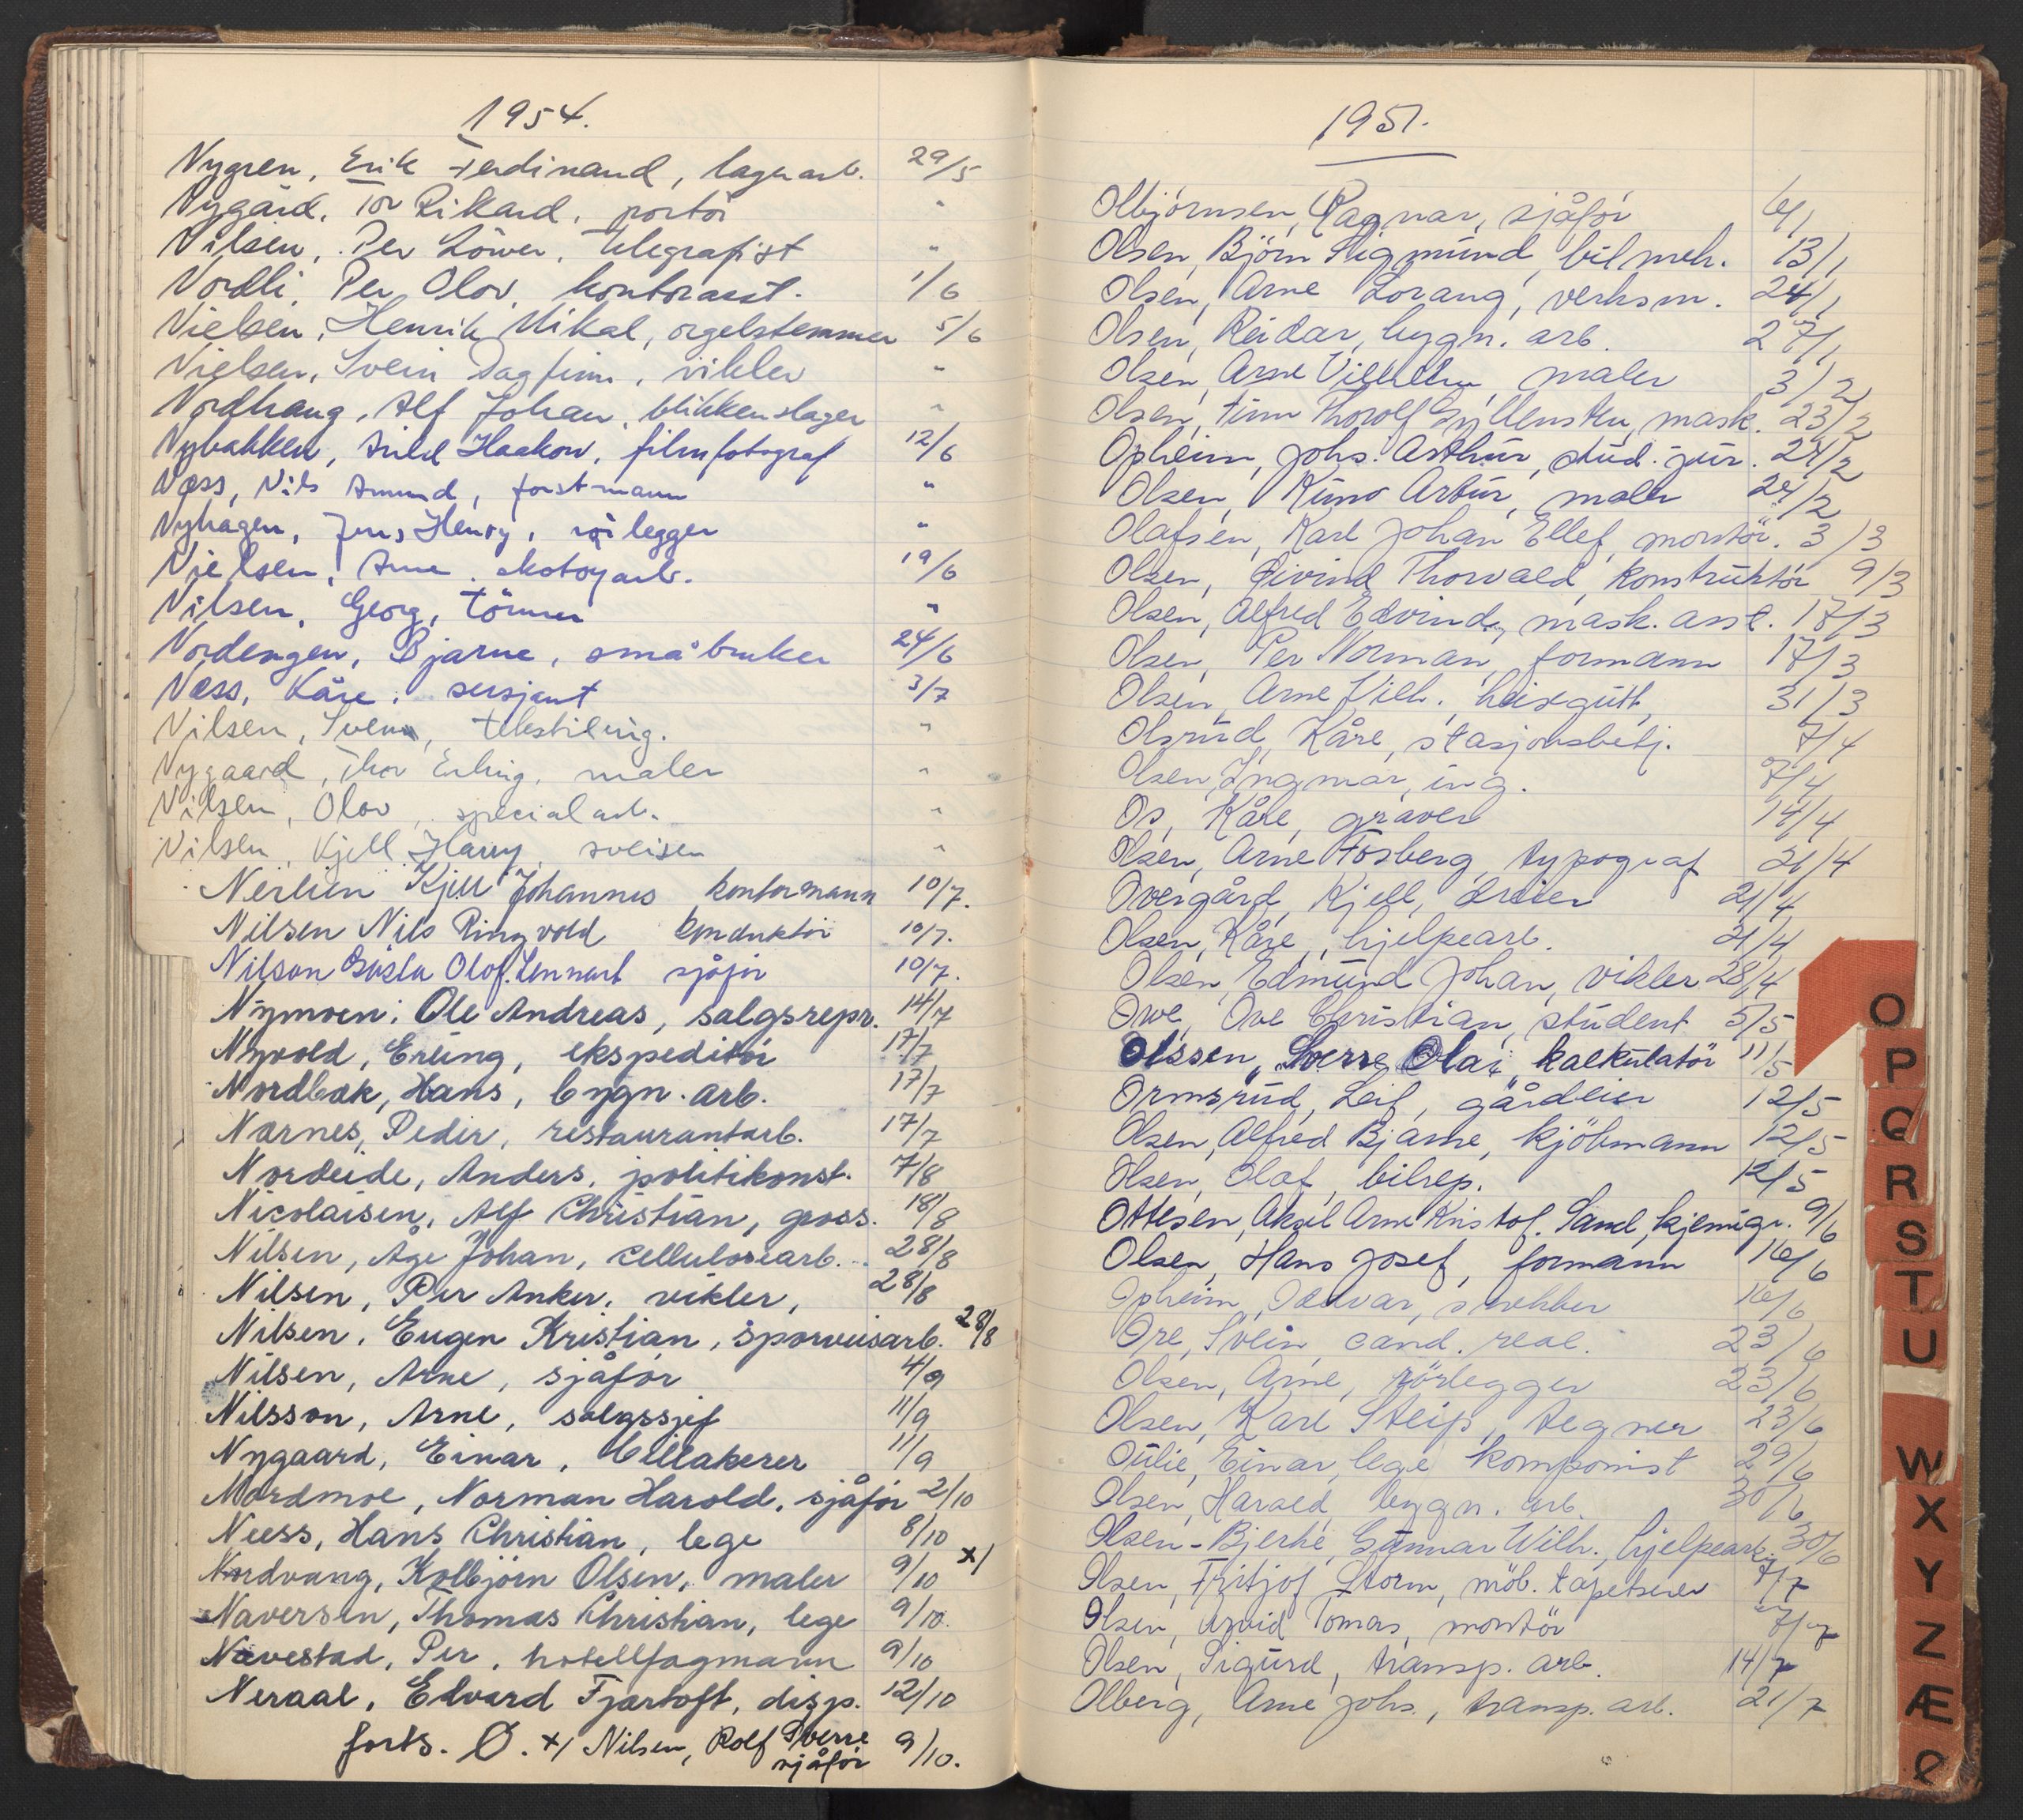 1954.
Nygren, Erik Ferdinand, lagerarb. 29/5
Nygård, Tor Rikard, portör "
Nilsen, Per Löwer, telegrafist "
Nordli, Per Olov, kontorasst. 1/6
Nielsen, Henrik Mikal, orgelstemmer 5/6
Nielsen, Svein Dagfinn, vikler "
Nordhaug, Alf Johan, blikkenslager "
Nybakken, Arild Haakon, filmfotograf 12/6
Næss, Nils Amund, forstmann "
Nyhagen, Jens Henry, rörlegger "
Nielsen, Arne, skotöyarb. 19/6
Nilsen, Georg, tömmer "
Nordengen, Bjarne, småbruker 24/6
Næss, Kåre, sersjant 3/7
Nilsen, Svenn, tekstiling. "
Nygaard, Thor Erling, maler "
Nilsen, Olov, specialarb. "
Nilsen, Kjell Harry, sveiser "
Nerlien Kjell Johannes kontormann 10/7.
Nilsen Nils Ringvold konduktör 10/7.
Nilson Gösta Olof Lennart sjåför 10/7.
Nymoen, Ole Andreas, salgsrepr. 14/7
Nyvold, Erling, ekspeditör 17/7
Nordbak, Hans, bygn. arb. 17/7
Nærnes, Peder, restaurantarb. 17/7
Nordeide, Anders, politikonst. 7/8
Nicolaisen, Alf Christian, gross. 18/8
Nilsen, Åge Johan, cellulosearb. 28/8
Nilsen, Per Anker, vikler, 28/8
Nilsen, Eugen Kristian, sporveisarb. 28/8
Nilsen, Arne, sjåför 4/9
Nilsson, Arne, salgssjef 11/9
Nygaard, Einar, billakerer 11/9
Nordmoe, Norman Harold, sjåför 2/10
Neess, Hans Christian, lege 8/10
Nordvang, Kolbjörn Olsen, maler 9/10 x/
Naversen, Thomas Christian, lege 9/10
Navestad, Per, hotellfagmann 9/10
Neraal, Edvard Fjærtoft, disp. 12/10
forts. Ø. x/ Nilsen, Rolf Sverre sjåför 9/10.
1951.
Olbjörnsen, Ragnar, sjåför 6/1
Olsen, Björn Sigmund, bilmek. 13/1
Olsen, Arne Lorang, verksm. 24/1
Olsen, Reidar, bygn. arb. 27/1
Olsen, Arne Vilhelm, maler 3/2
Olsen, Finn Thorolf Gyllensten, mask. 23/2
Opheim, Johs. Arthur, stud. jur. 24/2
Olsen, Kuno Artur, maler 24/2
Olafsen, Karl Johan Ellef, montör. 3/3
Olsen, Øivind Thorvald, konstruktör 9/3
Olsen, Alfred Edvind, mask. asst. 17/3
Olsen, Per Norman, formann 17/3
Olsen, Arne Vilh., heisgutt, 31/3
Olsrud, Kåre, stasjonsbetj. 7/4
Olsen, Ingmar, ing. 7/4
Os, Kåre, graver 14/4
Olsen, Arne Fosberg, typograf 21/4
Overgård, Kjell, dreier 21/4
Olsen, Kåre, hjelpearb. 21/4
Olsen, Edmund Johan, vikler 28/4
Owe, Ove Christian, student 5/5
Olssen, Sverre Olai, kalkulatör 11/5
Ormsrud, Leif, gårdeier 12/5
Olsen, Alfred Bjarne, kjöbmann 12/5
Olsen, Olaf, bilrep. 12/5
Ottesen, Aksel Arne Kristof. Sand, kjemigr. 9/6
Olsen, Hans Josef, formann 16/6
Opheim, Oddvar, snekker 16/6
Ore, Svein, cand. real. 23/6
Olsen, Arne, rörlegger 23/6
Olsen, Karl Steip, tegner 23/6
Oulie, Einar, lege komponist 29/6
Olsen, Harald, bygn. arb. 30/6
Olsen-Bjerke, Gunnar Wilh., hjelpearb. 30/6
Olsen, Fritjof Storm, möb. tapetserer 7/7
Olsen, Arvid Tomas, montör 7/7
Olsen, Sigurd, transp. arb. 14/7
Olberg, Arne Johs., transp. arb. 21/7
O
P
Q
R
S
T
U
W
X
Y
Z
Æ
Ø